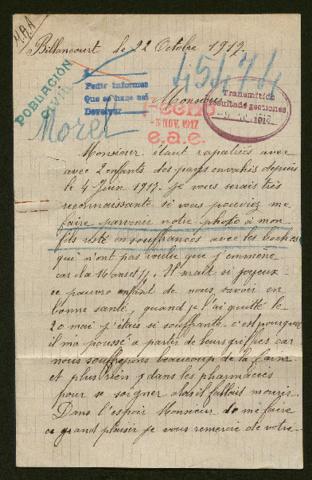 M.A.A
Billancourt le 22 Octobre 1917.
45474
POBLACIÓN
CIVIL
Pedir informes
Que se haga así
Devolver
Monsieur
5 NOV. 1917
e.a.e.
Transmitida
resultado gestiones
Morel
Monsieur étant rapatriés avec
avec 2 enfants des pays envahis depuis
le 4 Juin 1917. Je vous serais très
reconnaissante si vous pouviez me
faire parvenir notre photo à mon
fils resté en souffrances avec les boches
qui n'ont pas voulu que j'emmène
car il a 16 ans ½. Il serait si joyeux
ce pauvre enfant de nous savoir en
bonne santé, quand je l'ai quitté le
20 mai j'étais si souffrante c'est pourquoi
il m'a poussé a partir de leurs griffes, car
nous souffrions beaucoup de la faim
et plus rien dans les pharmacies
pour se soigner alors il fallait mourir.
Dans l'espoir Monsieur de me faire
ce grand plaisir je vous remercie de votre